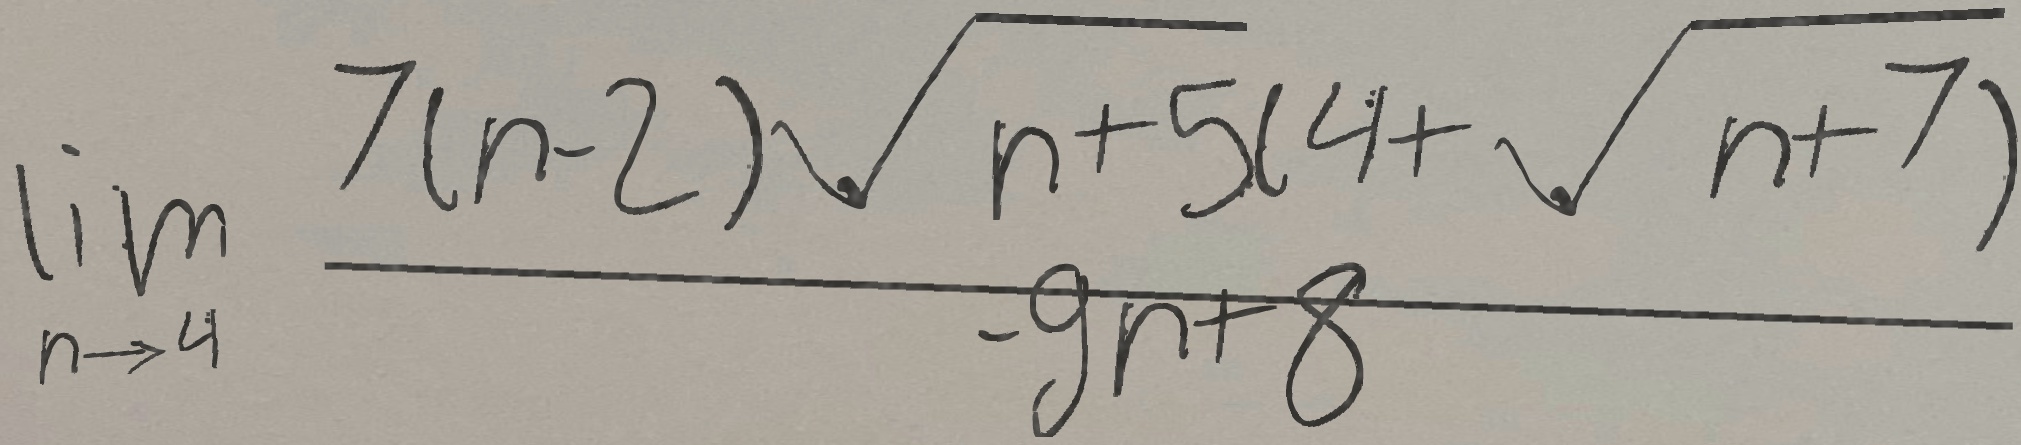 \lim_{n \to 4} \frac{7(n-2)\sqrt{n+5}(4+\sqrt{n+7})}{-9n+8}